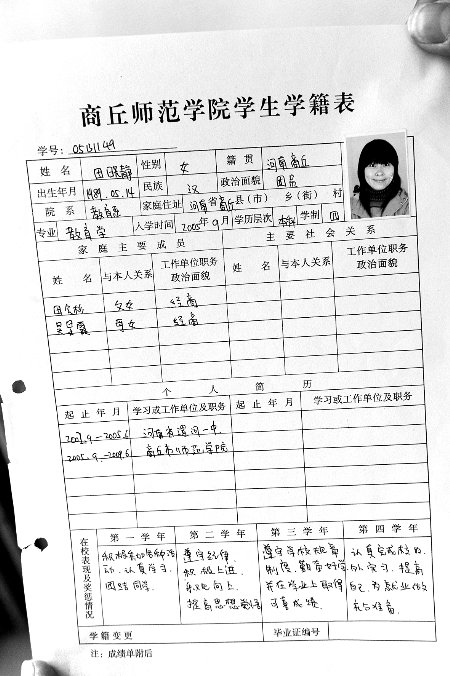 商丘师范学院学生学籍表
学号: 05131149
姓名 田 静 性别 女 籍贯 河南商丘
出生年月 1984.05.14 民族 汉 政治面貌 团员
院系 教育系 家庭住址 河南省商丘县(市) 乡(街) 村
专业 教育学 入学时间 2005年9月 学历层次 学制 四
家庭主要成员 主要社会关系
姓名 与本人关系 工作单位职务政治面貌 姓名 与本人关系 工作单位职务政治面貌
田 父女 经商
吴 母女 经商
个人简历
起止年月 学习或工作单位及职务 起止年月 学习或工作单位及职务
河南省 一中
2005.9.-2009.6 商丘市师范学院
在校表现及奖惩情况
第一学年 第二学年 第三学年 第四学年
积极参加各种活动、认真学习、团结同学。
遵守纪律 积极上进 积极向上 提高思想觉悟
遵守学校规章制度、勤奋好学 并在学业上取得可喜成绩。
认真完成校内、外实习、提高自己,为就业做充分准备。
学籍变更 毕业证编号
注: 成绩单附后